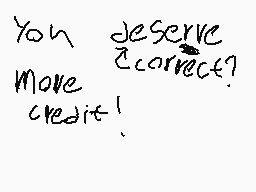 You deserve
more correct?
credit!